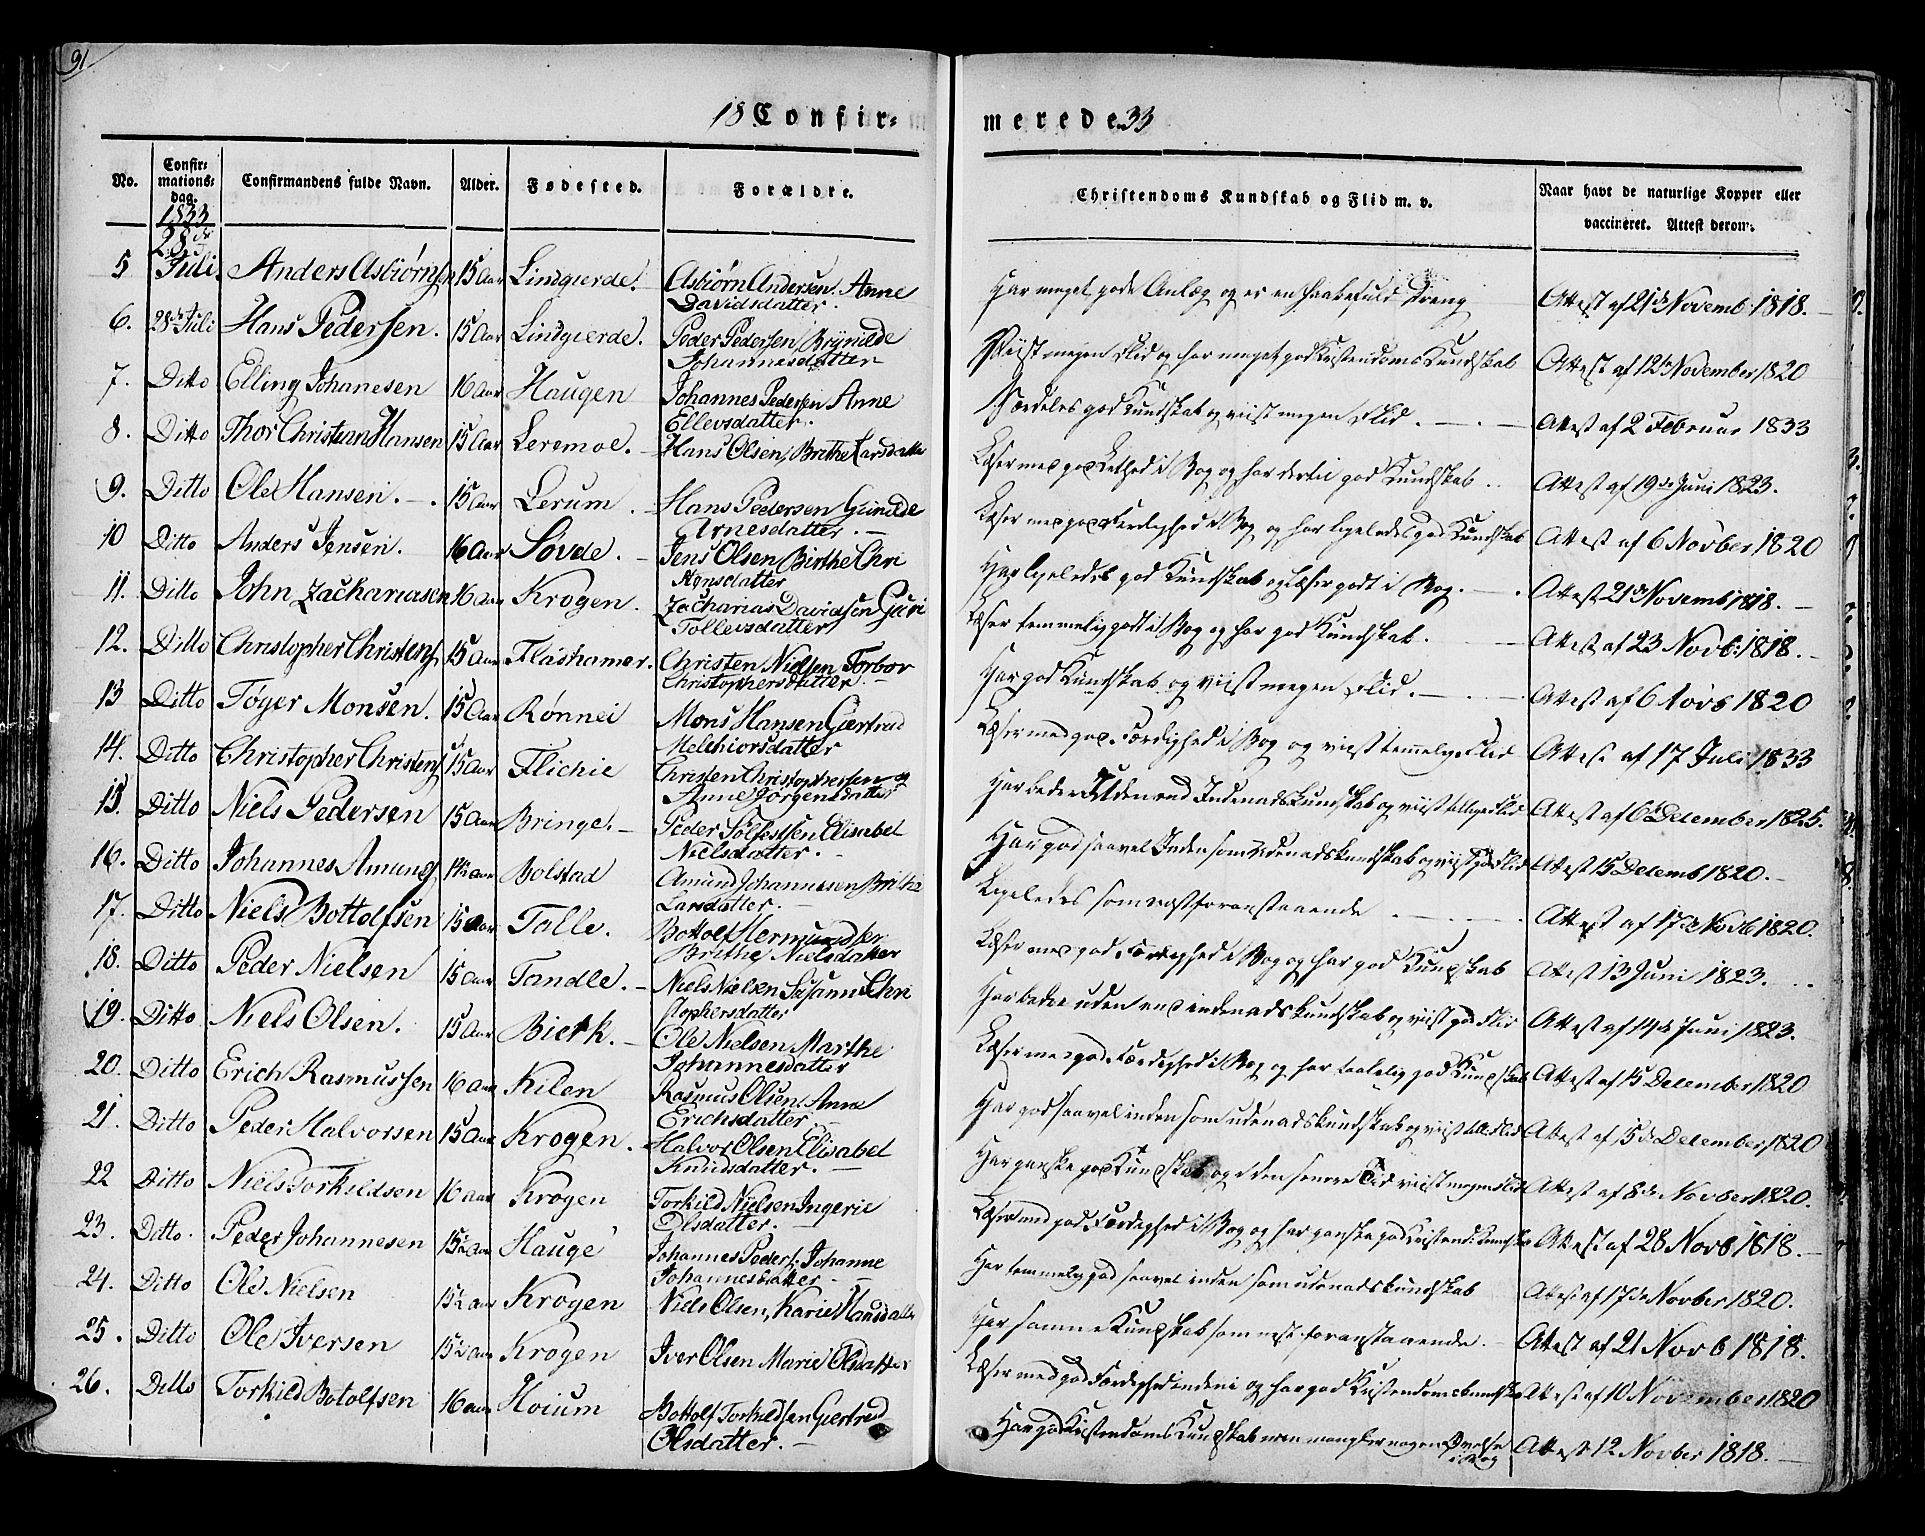 91
18 Confir-
merede 33
No. Confir-mations-dag. Confirmandens fulde Navn. Alder. Fødested. Forældre. Christendoms Kundskab og Flid m. v. Naar havt de naturlige Kopper eller vaccineret. Attest derom.
1833
28de
5 Juli. Anders Asbiørnsen 15 Aar Lindgierde. Asbiørn Andersen. Anne Davidsdatter. Har meget gode Anlæg og er en haabefuld Dreng Attest af 21de Novemb: 1818.
6. 28de Juli Hans Pedersen. 15 Aar Lindgierde. Peder Pedersen Brynilde Johannesdatter Viist megen Flid og har meget god Kristendoms Kundskab Attest af 12te November 1820
7. Ditto Elling Johanesen 16 Aar Haugen Johannes Pedersen Anne Ellevsdatter. Særdeles god Kundskab og viist megen Flid. Attest af 2 Februar 1833
8. Ditto Thor Christian Hansen 15 Aar Leremoe. Hans Olsen, Brithe Larsdatter Læser med god Lethed i Bog og har dertil god Kundskab. Attest af 19de Juni 1823.
9. Ditto Ole Hansen. 15 Aar Lerum. Hans Pedersen Gunilde Arnesdatter. Læser med god Færdighed i Bog og har ligeledes god Kundskab Attest af 6 Novber 1820
10 Ditto Anders Jensen. 16 Aar Sovde. Jens Olsen Birthe Christensdatter Har ligeledes god Kundskab og læser godt i Bog. Attest 21de Novemb 1818.
11. Ditto John Zachariassen 16 Aar Krogen. Zacharias Davidsen Guri Tollevsdatter Læser temmelig godt i Bog og har god Kundskab. Attest af 23 Novb: 1818.
12. Ditto Christopher Christens 15 Aar Flashamer. Christen Nielsen Torbor Christophersdatter. Har god Kundskab og viist megen Flid. Attest af 6 Novb 1820
13 Ditto Tøger Monsen. 15 Aar Rønnei Mons Hansen Giertrud Melchiorsdatter Læser med god Færdighed i Bog og viist temmelig Flid Attest af 17 Juli 1833
14. Ditto Christopher Christens 15 Aar Flichie Christen Christophersen og Anne Jørgensdatter Har bedre Uden end Indenadskundskab og viist tillige Flid Attest af 6te December 1825.
15. Ditto Niels Pedersen 15 Aar Bringe. Peder Sølfestsen Elisabet Nielsdatter. Har god saavel Inden som Udenadskundskab og viist god Flid Attest 15 Decemb 1820.
16. Ditto Johannes Amung 14½ Aar Bolstad Amund Johannesen Brithe Larsdatter. Ligeledes som næstforanstaaende Attest af 17de Novb 1820.
17. Ditto Niels Bottolfsen 15 Aar Talle. Bottolf Hermundsen Brithe Nielsdatter Læser med god Færdighed i Bog og har god Kundskab Attest 13 Juni 1823.
18. Ditto Peder Nielsen 15 Aar Tandle. Niels Nielsen Susanne Christophersdatter Har bedre uden end indenadskundskab og viist god Flid Attest af 14de Juni 1823.
19. Ditto Niels Olsen. 15 Aar Bierk. Ole Nielsen Marthe Johannesdatter Læser med god Færdighed i Bog og har taalelig god Kundskab Attest af 15 December 1820
20. Ditto Erich Rasmussen 16 Aar Kilen Rasmus Olsen, Anna Erichsdatter Har god saavel inden som udenadskundskab og viist tillige Flid Attest af 15de December, 1820
21. Ditto Peder Halvorsen 15 Aar Krogen. Halvor Olsen Elisabet Knudsdatter. Har ganske god Kundskab og i den senere Tid viist megen Flid Attest af 8de Novber 1820.
22 Ditto Niels Torkildsen 16 Aar Krogen Torkild Nielsen Ingerie Olsdatter. Læser med god Færdighed i Bog og har ganske god Kristend: Kundskab Attest af 28 Novb 1818.
23. Ditto. Peder Johannesen 15½ Aar Hauge Johannes Peders. Johanne Johannesdatter Har temmelig god saavel inden som udenadskundskab Attest af 17de Novber 1820.
24. Ditto Ole Nielsen 15½ Aar Krogen Niels Olsen, Karie Hansdatter Har samme Kundskab som næst foranstaaende. Attest af 21 Novb 1818.
25. Ditto Ole Iversen 15½ Aar Krogen Iver Olsen Marie Olsdatter Læser med god Færdighed indeni og har god Kristendomskundskab Attest af 10 November 1820
26. Ditto Torkild Botolfsen 16 Aar Hoium Bottolf Torkildsen Giertrud Olsdatter. Har god Kristendoms Kundskab men mangler nogen Øvelse i Bog Attest 12 Novber 1818.